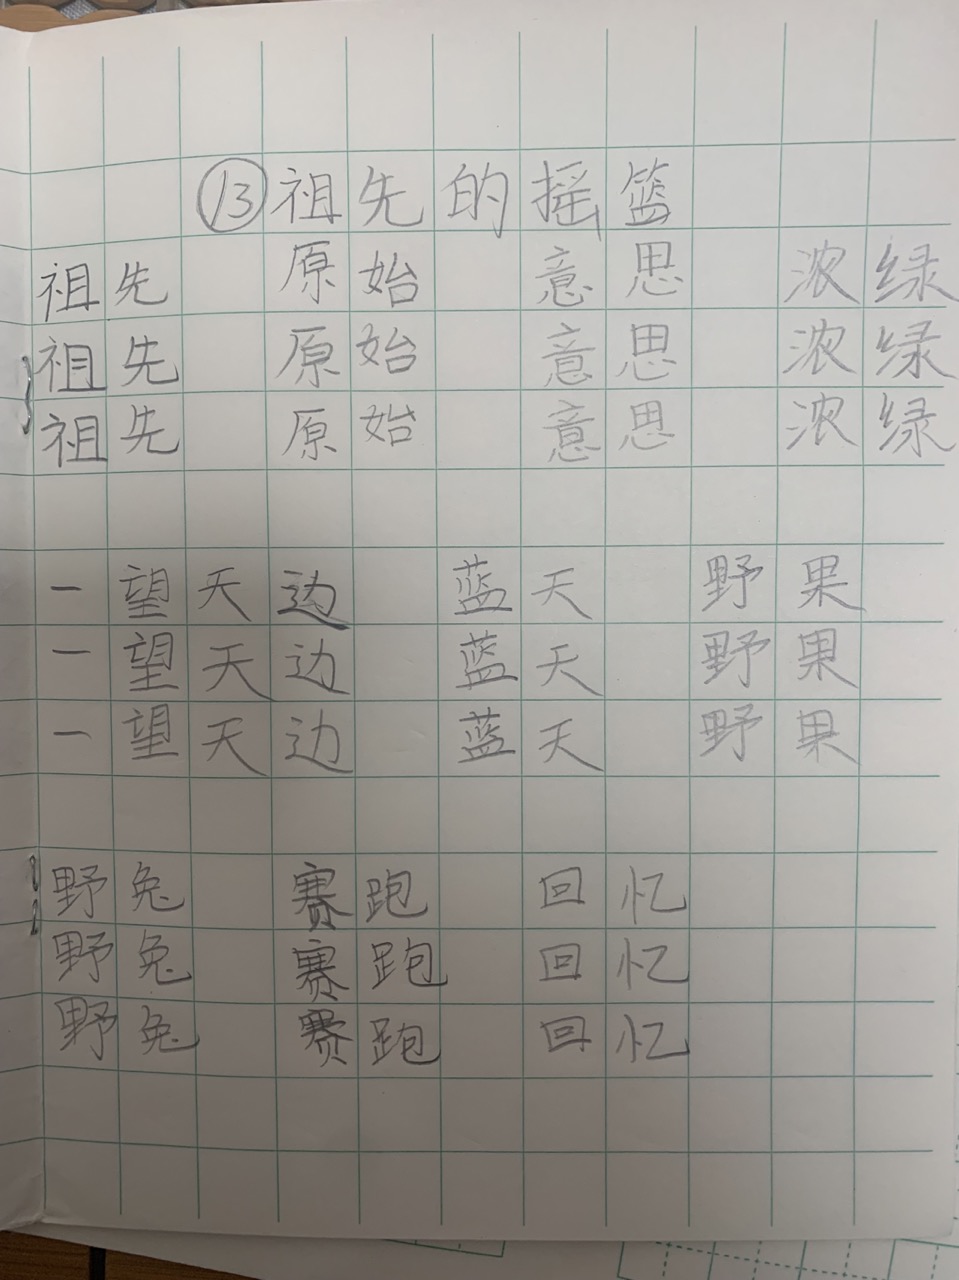 ⑬祖先的摇篮
祖先 原始 意思 浓绿
祖先 原始 意思 浓绿
祖先 原始 意思 浓绿
一望天边 蓝天 野果
一望天边 蓝天 野果
一望天边 蓝天 野果
野兔 赛跑 回忆
野兔 赛跑 回忆
野兔 赛跑 回忆